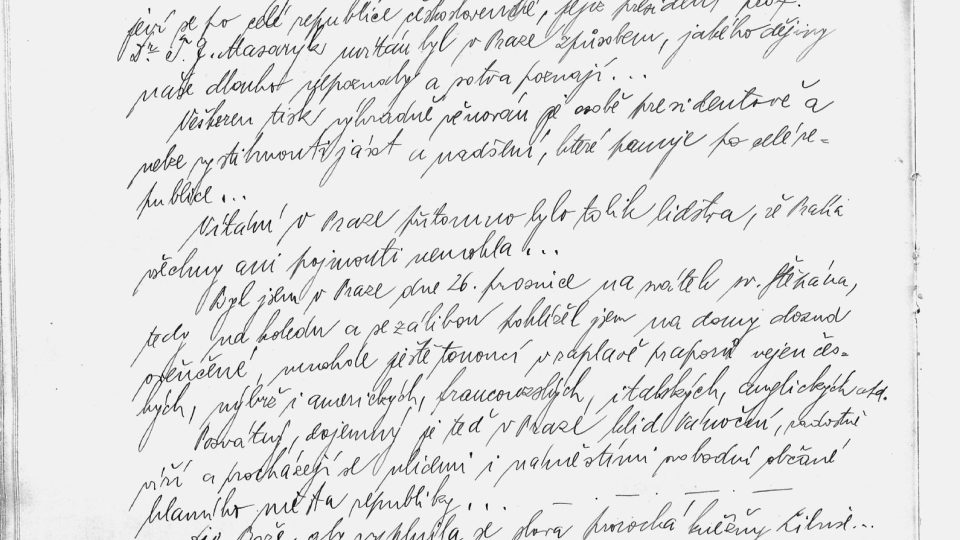 jeví se po celé republice československé, jejíž president prof.
Dr. T. G. Masaryk uvítán byl v Praze způsobem, jakého dějiny
naše dlouho nepoznaly a sotva poznají...
Veškeren tisk výhradně věnován je osobě presidentově a
nelze vystihnouti jásot a nadšení, které panuje po celé re-
publice...
Vítání v Praze přítomno bylo tolik lidstva, že Praha
všechny ani pojmouti nemohla...
Byl jsem v Praze dne 26. prosince na svátek sv. Štěpána,
tedy na koledu a se zálibou pohlížel jsem na domy dosud
ověnčené, mnohde ještě tonoucí v záplavě praporů nejen čes-
kých, nýbrž i amerických, francouzských, italských, anglických atd.
Posvátný, dojemný je teď v Praze klid vánoční, radostně
víří a procházejí se ulicemi i náměstími svobodní občané
hlavního města republiky...
Dej Bože, aby vyplnila se slova prorocká kněžny Libuše...